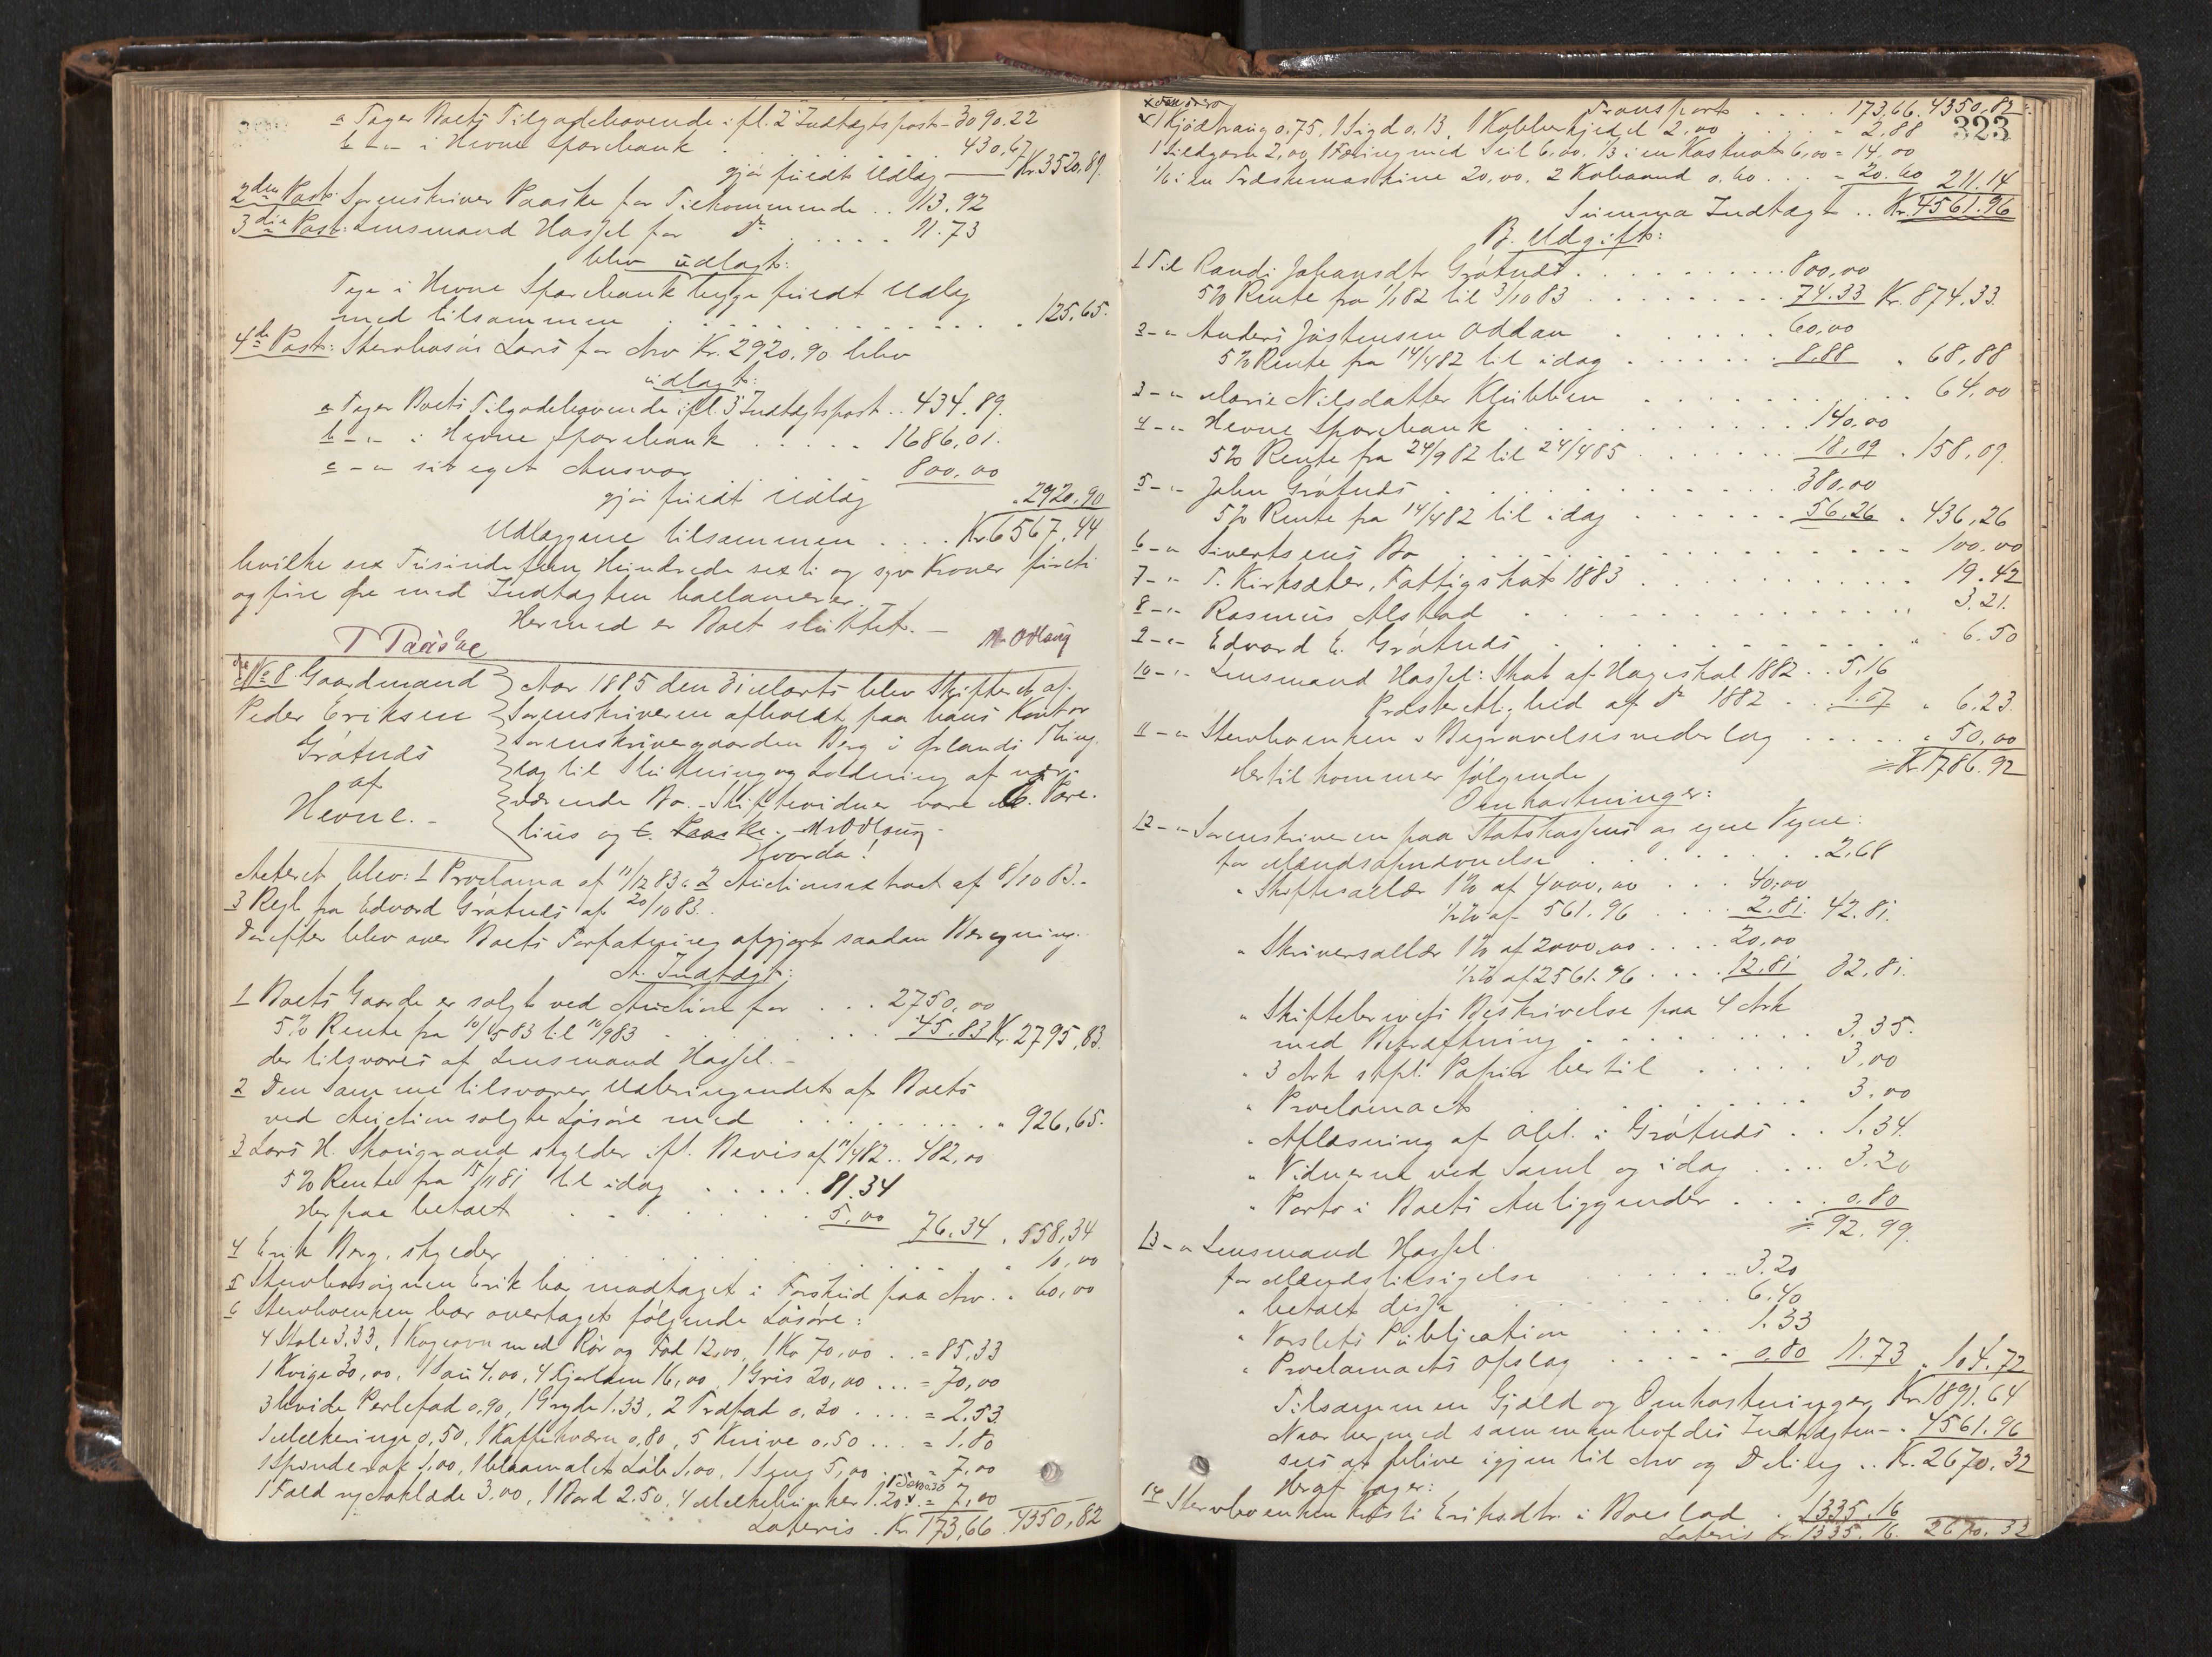 a Tager Boets Tilgodehavende ifl. 2 Indtægtspost - 3090.22
b - " - i Hevne Sparebank . . . 430,67
gjør fuldt Udlæg — Kr. 3520,89.
2den Post: Sorenskriver Paaske for Tilkommende . . 113.92
3die Post: Lensmand Hassel for do . . . . 11.73
blev udlagt:
Tager i Hevne Sparebank begge fuldt Udlæg
med tilsammen . . . . . . . . . . " 125,65.
4de Post: Stervbosøn Lars for Arv Kr. 2920,90 blev
udlagt:
a Tager Boets Tilgodehavende ifl. 3 Indtægtspost . . 434.89.
b - " - i Hevne Sparebank . . . . . 1686,01.
c - " sit eget Ansvar 800,00
gjør fuldt Udlæg " 2920,90
Udlæggene tilsammen . . . . Kr. 6567,44
hvilke sex Tusinde fem Hundrede sexti og syv Kroner fireti
og fire Øre med Indtægten ballancerer. -
Hermed er Boet sluttet. -
T Paaske M. Odlaug
No 8. Gaardmand
Peder Eriksen
Grøtnes
af
Hevne. -
Aar 1885 den 31 Marts blev Skifteret af
Sorenskriveren afholdt paa hans Kontor
Sorenskrivergaarden Berg i Ørlands Thing-
lag til Slutning og Lodning af nær-
værende Bo. - Skiftevidner vare C. Pare-
lius og C. Paaske. M. Odlaug -
Hvorda!
Acteret blev: 1 Proclama af 11/12 83 " 2 Auctionsextract af 8/10 83. -
3 Regl. fra Edvard Grøtnes af 20/10 83.
Derefter blev over Boets Forfatning afgjort saadan Beregning.
A. Indtægt:
1 Boets Gaard er solgt ved Auction for . . . 2750,00
5% Rente fra 10/5 83 til 10/9 83 . . . . 45.83 Kr. 2795,83.
der tilsvares af Lensmand Hassel. -
2 Den samme tilsvarer Udbringendet af Boets
ved Auction solgte Løsøre med . . . . . . . . " 926,65.
3 Lars H. Skougrand skylder ifl. Bevis af 14/4 82 . . 482,00
5% Rente fra 15/11 81 til idag . . . . . 81.34
Herpaa betalt . . . . . . . 5,00 76,34 " 558,34
4 Erik Berg, skylder . . . . . . . . . " 10,00
5 Stervbosønnen Erik har modtaget i Forskud paa Arv . " 60,00
6 Stervboenken har overtaget følgende Løsøre:
4 Stole 3.33, 1 Kogeovn med Rør og Fod 12,00, 1 Ko 70,00 . . = 85,33
1 Kvige 30,00, 1 Sau 4,00, 4 Gjerlam 16,00, 1 Gris 20,00 . . . = 70,00
3 hvide Perlefad 0,90, 1 Gryde 1.33, 2 Træfad 0.30 . . . . = 2.53.
1 Melkeringe 0,50, 1 Kaffekværn 0,80, 5 Knive 0.50 . . . = 1.80
1 Spinderok 1,00, 1 blaamalet Løb 1,00, 1 Seng 5,00 . . = 7,00
1 Fæld og Aaklæde 3.00, 1 Bord 2.50, 4 Melkebunker 1.20 = 7,00
Lateris . Kr. 173,66 . 4350,82
323
Transport . . . . 173,66. 4350,82.
1 Kjødtraug 0.75, 1 Sigd 0.13, 1 Kobberkjedel 2,00 . . . " 2.88
1 Sildgarn 2,00, 1 Færing med Seil 6,00. 1/3 i en Kastnot 6,00 = 14,00
1/6 i en Træskemaskine 20,00. 2 Kobaand 0.60 . . . = 20.60 211.14
Summa Indtægt . . Kr. 4561.96
B. Udgift:
1 Til Randi Johansdtr Grøtnes . . . . . . . 800,00
5% Rente fra 1/1 82 til 3/10 83 . . . . . . 74.33 Kr. 874.33.
2 - " Anders Jøstensen Oddan . . . . . . 60,00
5% Rente fra 14/4 82 til idag . . . . . . 8.88 " 68,88
3 - " Marie Nilsdatter Klubben . . . . . . . . . 64,00
4 - " Hevne Sparebank . . . . . . . . 140,00
5% Rente fra 24/9 82 til 24/4 85 . . . . . . 18,09 " 158,09.
5 - " John Grøtnes . . . . . . . . . . 380,00
5% Rente fra 14/4 82 til idag . . . . . . 56,26 " 436,26
6 - " Sivertsens Bo . . . . . . . . . . . . . 100,00
7 - " T. Kirksæter, Fattigskat 1883 . . . . . . . . 19.42
8 - " Rasmus Alstad . . . . . . . . . . . . " 3.21.
9 - " Edvard E. Grøtnes . . . . . . . . . . . " 6.50
10 - " Lensmand Hassel: Skat af Hageskal 1882 . . 5,16
Præsterettighed af do 1882 . . . 1.07 " 6.23
11 - " Stervboenken i Begravelsesvederlag . . . . . " 50,00
÷ Kr. 1786.92
Hertil kommer følgende
Omkostninger:
12 - " Sorenskriveren paa Statskassens og egne Vegne:
for Mændsopnævnelse . . . . . . . . 2,68
" Skiftesallær 1% af 4000,00 . . . 40,00
1/2% af 561.96 . . . . 2.81. 42.81.
" Skriversallær 1% af 2000,00 . . . . 20,00
1/2% af 2561.96 . . . . 12.81 32,81.
" Skiftebrevets Beskrivelse paa 4 Ark
med Bekræftning . . . . . . . . . 3.35.
" 3 Ark stpl. Papir hertil . . . . . 3,00
" Proclamaet . . . . . . . . . . 3,00
" Aflæsning af Obl. i Grøtnes . . . 1.34.
" Vidnerne ved Saml. og idag . . . . 3.20
" Porto i Boets Anliggender . . . . 0,80
÷ 92,99.
13 - " Lensmand Hassel.
for Mændstilsigelse . . . . . . 3.20
" betalt disse . . . . . . . 6.40
" Varslets Publication . . . . . 1.33
" Proclamaets Opslag . . . . . 0,80 11.73 " 104.72
Tilsammen Gjæld og Omkostninger Kr. 1891.64
Naar hermed sammenholdes Indtægten - " 4561.96
sees at blive igjen til Arv og Deling . . K. 2670.32
Heraf tager:
14 Stervboenken Kirsti Eriksdtr. i Boeslod . 1335.16
Lateris Kr. 1335.16. 2670.32